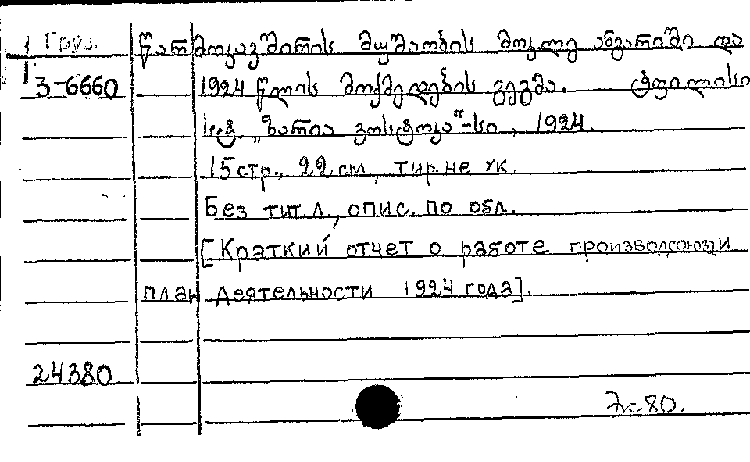 1 Груз.
წარმოკავშირის მუშაობის მოკლე ანგარიში და
3-6660
1924 წლის მოქმედების გეგმა. ტფილისი
სტ. „ზარია ვოსტოკა“-სი, 1924.
15 стр., 22 см, тир. не ук.
Без тит. л., опис. по обл.
[Краткий отчет о работе производсоюза и
план деятельности 1924 года].
24380
80.